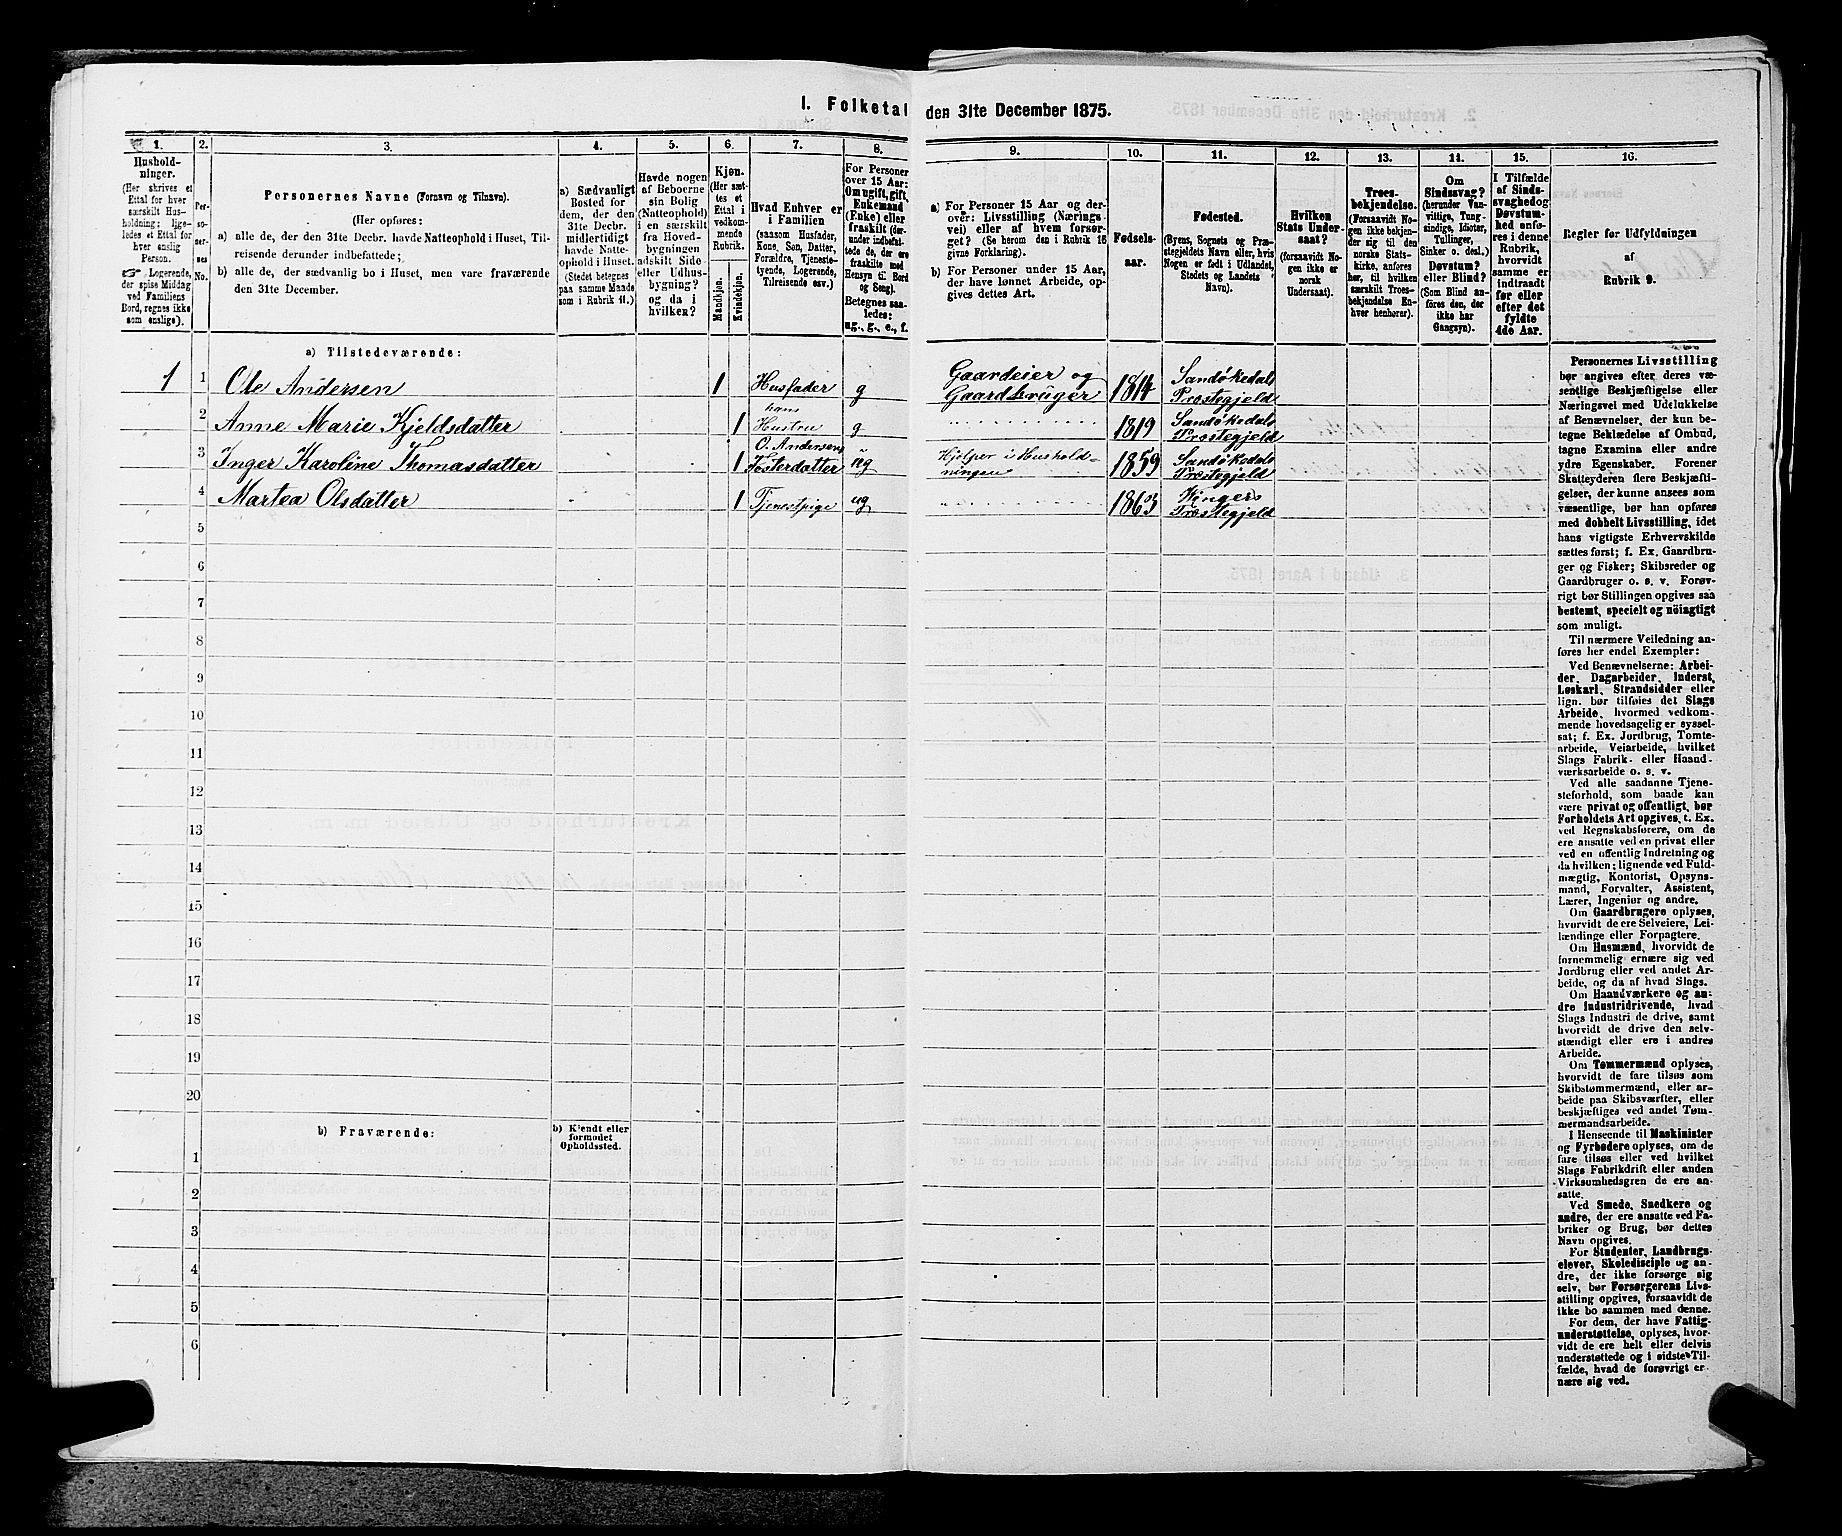 I. Folketal den 31te December 1875.
1.
Hushold-
ninger.
(Her skrives et
Ettal for hver
særskilt Hus-
holdning; lige-
ledes et Ettal for
hver enslig
Person.
☞ Logerende,
der spise Middag
ved Familiens
Bord, regnes ikke
som enslige).
2.
Per-
so-
ner-
nes
No.
3.
Personernes Navne (Fornavn og Tilnavn).
(Her opføres:
a) alle de, der den 31te Decbr. havde Natteophold i Huset, Til-
reisende derunder indbefattede;
b) alle de, der sædvanlig bo i Huset, men vare fraværende
den 31te December.
4.
a) Sædvanligt
Bosted for
dem, der den
31te Decbr.
midlertidigt
havde Natte-
ophold i Huset.
(Stedet betegnes
paa samme Maade
som i Rubrik 11.)
5.
Havde nogen
af Beboerne
sin Bolig
(Natteophold)
i en særskilt
fra Hoved-
bygningen
adskilt Side-
eller Udhus-
bygning?
og da i
hvilken?
6.
Kjøn.
(Her sæt-
tes et
Ettal i
vedkom-
mende
Rubrik.
Mandkjøn.
Kvindekjøn.
7.
Hvad Enhver er
i Familien
(saasom Husfader,
Kone, Søn, Datter,
Forældre, Tjeneste-
tyende, Logerende,
Tilreisende osv.)
8.
For Personer
over 15 Aar:
Om ugift, gift,
Enkemand
(Enke) eller
fraskilt (der-
under indbefat-
tede de, der ere
fraskilte med
Hensyn til Bord
og Seng).
Betegnes saa-
ledes:
ug., g., e., f.
9.
a) For Personer 15 Aar og der-
over: Livsstilling (Nærings-
vei) eller af hvem forsør-
get? (Se herom den i Rubrik 16
givne Forklaring).
b) For Personer under 15 Aar,
der have lønnet Arbeide, op-
gives dettes Art.
10.
Fødsels-
aar.
11.
Fødested.
(Byens, Sognets og Præ-
stegjeldets Navn eller, hvis
Nogen er født i Udlandet,
Stedets og Landets
Navn).
12.
Hvilken
Stats Under-
saat?
(forsaavidt No-
gen ikke er
norsk
Undersaat).
13.
Troes-
bekjendelse.
(Forsaavidt No-
gen ikke bekjen-
der sig til den
norske Stats-
kirke, anføres
her, til hvilken
særskilt Troes-
bekjendelse En-
hver henhører).
14.
Om
Sindssvag?
(herunder Van-
vittige, Tung-
sindige, Idioter,
Tullinger,
Sinker o. desl.)
Døvstum?
eller Blind?
(Som Blind an-
føres den, der
ikke har
Gangsyn).
15.
I Tilfælde
af Sinds-
svaghed og
Døvstum-
hed anfø-
res i denne
Rubrik,
hvorvidt
samme er
indtraadt
før eller
efter det
fyldte
4de Aar.
16.
Regler for Udfyldningen
af
Rubrik 9.
a) Tilstedeværende:
1 1 Ole Andersen 1 Husfader g Gaardeier og Gaardbruger 1814 Sandøkedals Præstegjeld
2 Anne Marie Kjeldsdatter 1 hans Hustru g 1819 Sandøkedals Præstegjeld
3 Inger Karoline Thomasdatter 1 O. Andersens Fosterdatter ug Hjelper i Hushold-
ningen 1859 Sandøkedals Præstegjeld
4 Martea Olsdatter 1 Tjenestpige ug 1863 Vingers Præstegjeld
5
6
7
8
9
10
11
12
13
14
15
16
17
18
19
20
b) Fraværende:
b) Kjendt eller
formodet
Opholdssted.
1
2
3
4
5
6
Personernes Livsstilling
bør angives efter deres væ-
sentlige Beskjæftigelse eller
Næringsvei med Udelukkelse
af Benævnelser, der kun be-
tegne Beklædelse af Ombud,
tagne Examina eller andre
ydre Egenskaber. Forener
Skatteyderen flere Beskjæfti-
gelser, der kunne ansees som
væsentlige, bør han opføres
med dobbelt Livsstilling, idet
hans vigtigste Erhvervskilde
sættes først; f. Ex. Gaardbru-
ger og Fisker; Skibsreder og
Gaardbruger o. s. v. Forøv-
rigt bør Stillingen opgives saa
bestemt, specielt og nöiagtigt
som muligt.
Til nærmere Veiledning an-
føres her endel Exempler:
Ved Benævnelserne: Arbei-
der, Dagarbeider, Inderst,
Løskarl, Strandsidder eller
lign. bør tilføies det Slags
Arbeide, hvormed vedkom-
mende hovedsagelig er syssel-
sat; f. Ex. Jordbrug, Tomte-
arbeide, Veiarbeide, hvilket
Slags Fabrik- eller Haand-
værksarbeide o. s. v.
Ved alle saadanne Tjene-
steforhold, som baade kan
være privat og offentligt, bør
Forholdets Art opgives, t. Ex.
ved Regnskabsførere, om de
ere ansatte ved en privat eller
ved en offentlig Indretning og
da hvilken; lignende ved Fuld-
mægtig, Kontorist, Opsyns-
mand, Forvalter, Assistent,
Lærer, Ingeniør og andre.
Om Gaardbrugere oplyses,
hvorvidt de ere Selveiere, Lei-
lændinge eller Forpagtere.
Om Husmænd, hvorvidt de
fornemmelig ernære sig ved
Jordbrug eller ved andet Ar-
beide, og da af hvad Slags.
Om Haandværkere og an-
dre Industridrivende, hvad
Slags Industri de drive, samt
hvorvidt de drive den selv-
stændigt eller ere i andres
Arbeide.
Om Tømmermænd oplyses,
hvorvidt de fare tilsøs som
Skibstømmermænd, eller ar-
beide paa Skibsværfter, eller
beskjæftiges ved andet Tøm-
mermandsarbeide.
I Henseende til Maskinister
og Fyrbødere oplyses, om de
fare tilsøs eller ved hvilket
Slags Fabrikdrift eller anden
Virksomhedsgren de ere an-
satte.
Ved Smede, Snedkere og
andre, der ere ansatte ved Fa-
briker og Brug, bør dettes
Navn opgives.
For Studenter, Landbrugs-
elever, Skoledisciple og an-
dre, der ikke forsørge sig
selv, bør Forsørgerens Livs-
stilling opgives, forsaavidt de
ikke bo sammen med denne.
For dem, der have Fattig-
understøttelse, oplyses, hvor-
vidt de ere helt eller delvis
understøttede og i sidste Til-
fælde, hvad de forøvrigt er-
nære sig ved.